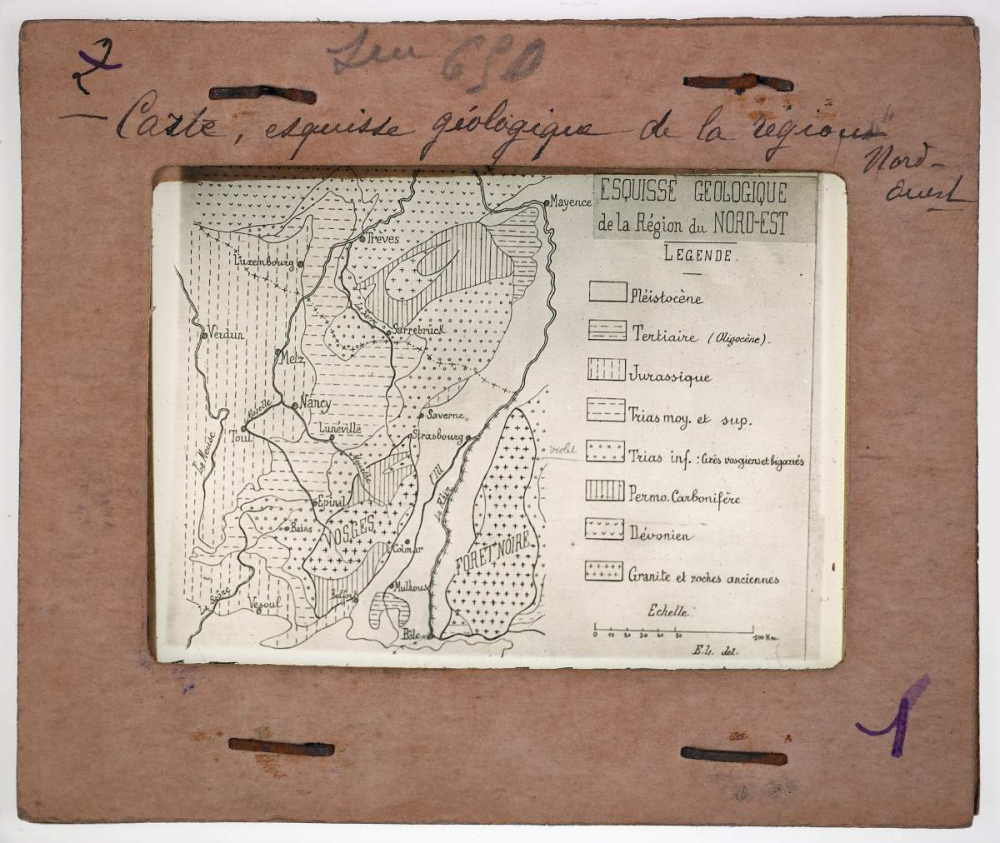 2
650
— Carte, esquisse géologique de la région
Nord-
Ouest
ESQUISSE GEOLOGIQUE
de la Région du NORD-EST
LEGENDE.
Pléistocène
Tertiaire (Oligocène).
Jurassique
Trias moy. et sup.
Trias inf. : Grès vosgiens et bigarrés
Permo.Carbonifère
Dévonien
Granite et roches anciennes
Echelle
0 10 20 30 40 50 100 Km.
E.L. del.
violet
Mayence
Trèves
Luxembourg
Sarrebrück
Verdun
Metz
Nancy
Moselle
Saverne
Toul
Lunéville
Strasbourg
La Meuse
L'Ill
Le Rhin
Epinal
VOSGES
Bains
Colmar
FORET NOIRE
Belfort
Mulhouse
La Saône
Vesoul
Bâle
1